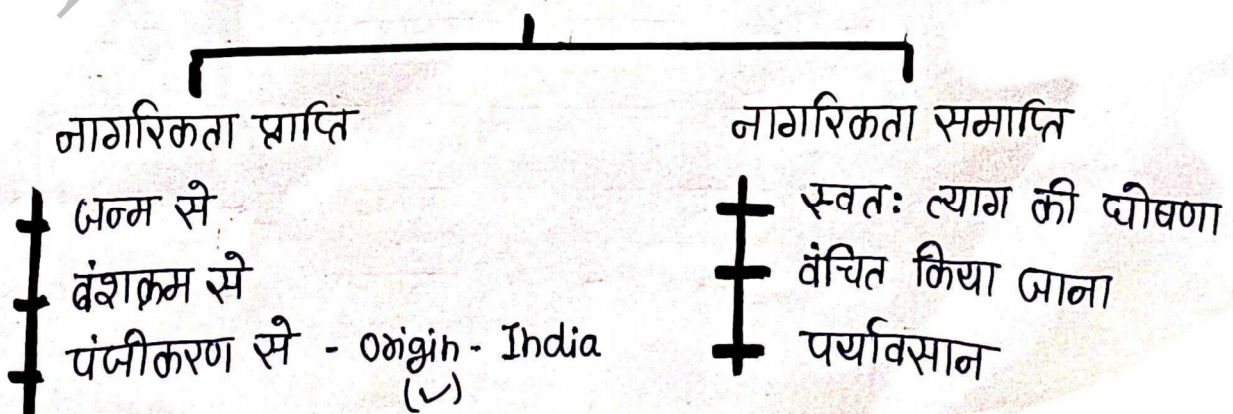 नागरिकता प्राप्ति
जन्म से
वंशक्रम से
पंजीकरण से - Origin - India
(✓)
नागरिकता समाप्ति
स्वतः त्याग की घोषणा
वंचित किया जाना
पर्यावसान